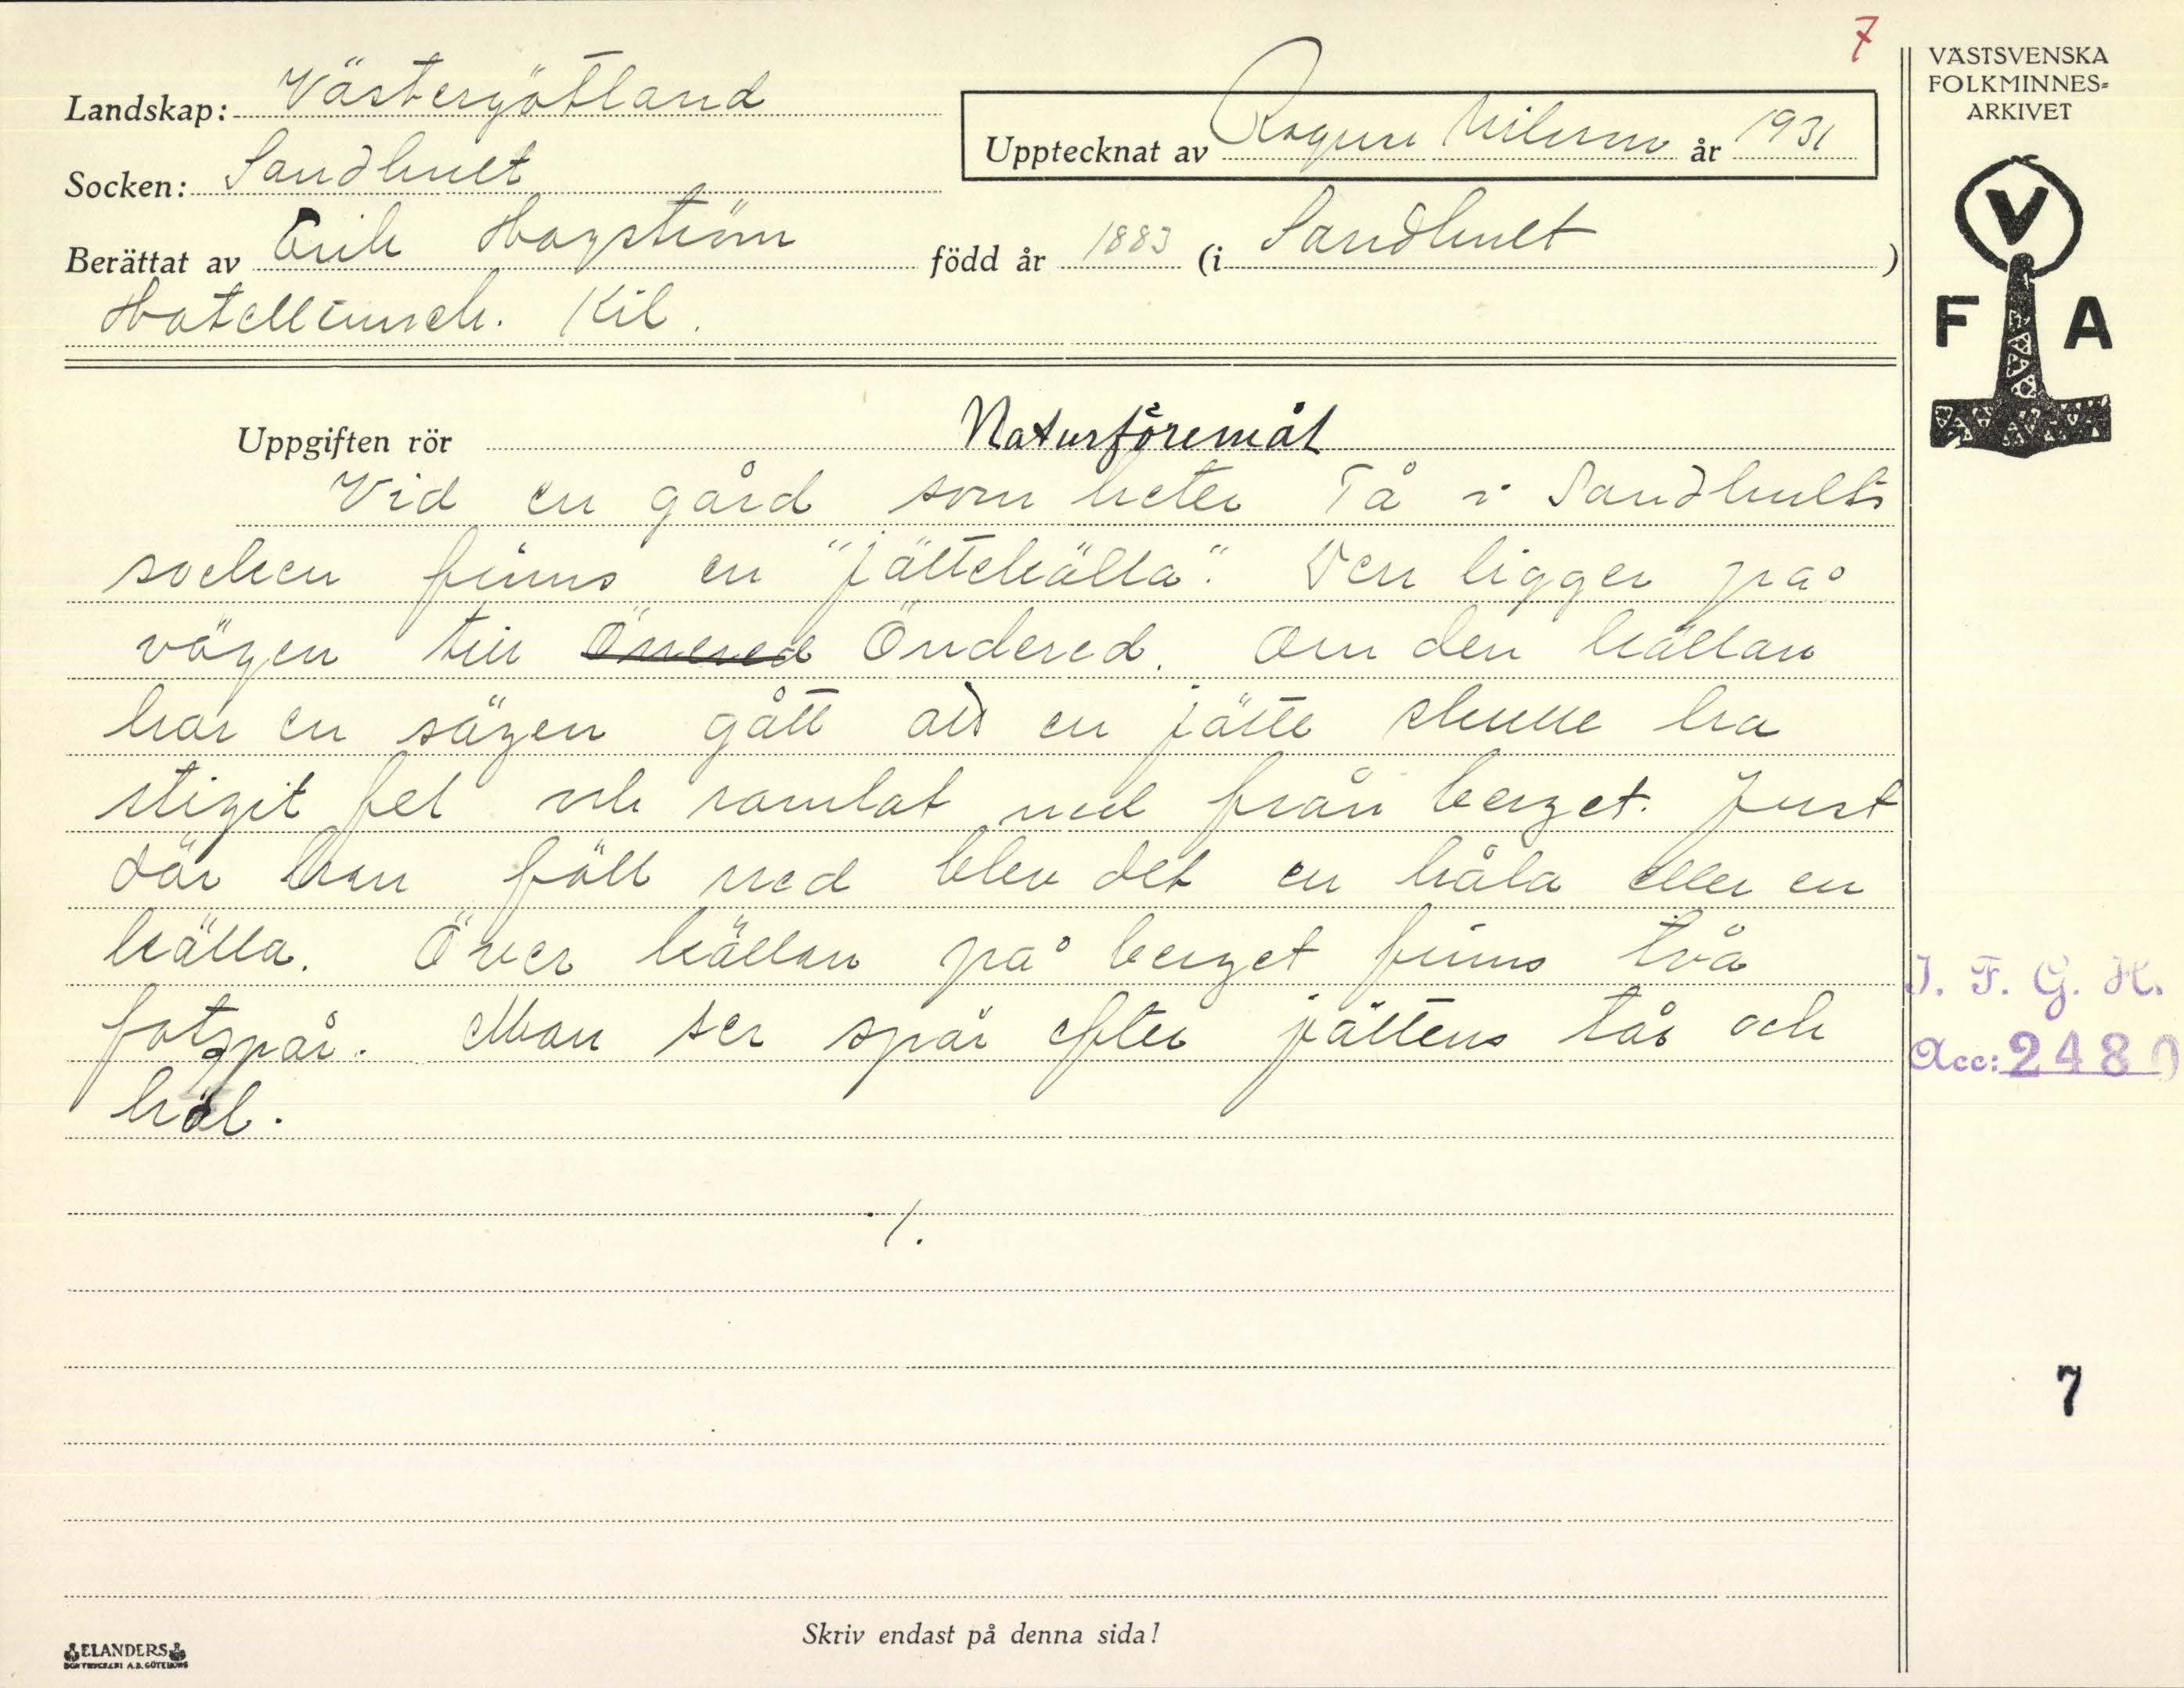 7
Landskap: Västergötland
Socken: Sandhult
Upptecknat av Ragnar Nilsson år 1931
Berättat av Erik Hagström född år 1883 (i Sandhult )
Hotellinneh. Kil.
VÄSTSVENSKA
FOLKMINNES-
ARKIVET
V
F A
Uppgiften rör Naturföremål
Vid en gård som heter Tå i Sandhults
socken finns en "jättekälla". Den ligger på
vägen till Önered Öndered. Om den källan
har en sägen gått att en jätte skulle ha
stigit fel och ramlat ned från berget. Just
där han föll ned blev det en håla eller en
källa. Över källan på berget finns två
fotspår. Man ser spår efter jättens tår och
häl.
./.
I. F. G. H.
Acc: 2480
7
Skriv endast på denna sida!
ELANDERS
BOKTRYCKERI A.B. GÖTEBORG